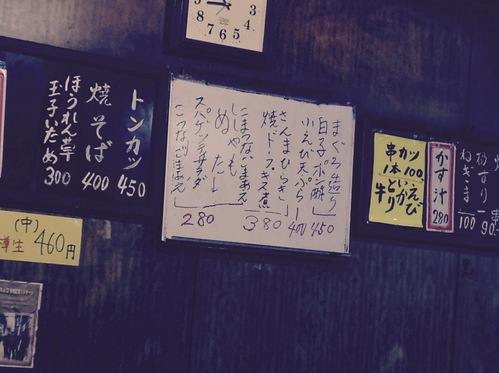 トンカツ 450
焼そば 400
ほうれん草
玉子いため 300
(中)
樽生 460円
まぐろ造り 450
白子ポン酢
小えび天ぷら 400
さんまひらき
焼ドーフキス煮 380
こまつなごまあえ
ししゃも
めた
スパゲッティサラダ
こつなごまあえ 280
串カツ
1本100
といかえび
牛り
かす汁 280
砂ずり一串 90
ねぎま 100
3
4
5
6
7
8
9